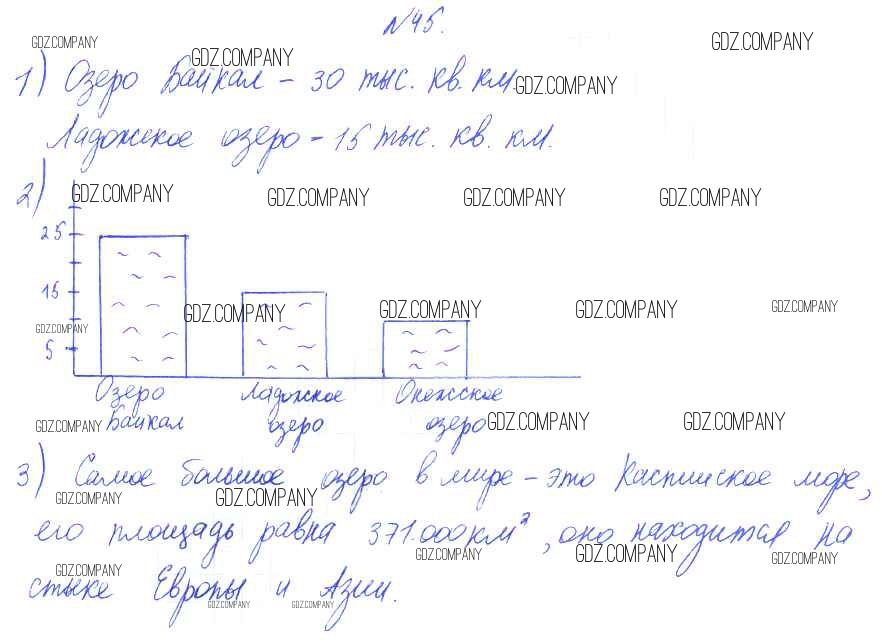 №45.
GDZ.COMPANY GDZ.COMPANY GDZ.COMPANY
1) Озеро Байкал – 30 тыс. кв. км. GDZ.COMPANY
Ладожское озеро – 15 тыс. кв. км.
2) GDZ.COMPANY GDZ.COMPANY GDZ.COMPANY GDZ.COMPANY
25
15
GDZ.COMPANY GDZ.COMPANY GDZ.COMPANY GDZ.COMPANY
GDZ.COMPANY
5
Озеро Ладожское Онежское
GDZ.COMPANY Байкал озеро озеро GDZ.COMPANY GDZ.COMPANY
3) Самое большое озеро в мире – это Каспийское море,
GDZ.COMPANY GDZ.COMPANY
его площадь равна 371.000 км², оно находится на
GDZ.COMPANY GDZ.COMPANY GDZ.COMPANY
GDZ.COMPANY
стыке Европы и Азии.
GDZ.COMPANY GDZ.COMPANY